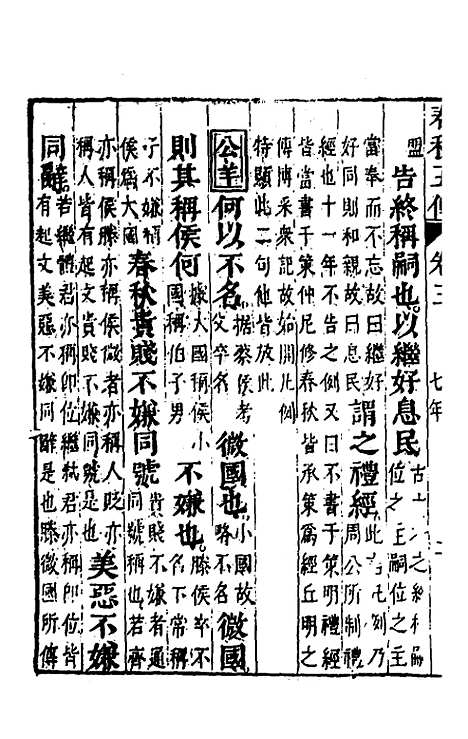 春秋五傳 卷三 七年
盟 告終稱嗣也。以繼好息民 之終稱嗣 位之主嗣位之主
當奉而不忘故曰繼好 好同則和親故曰息民 謂之禮經 此 凡例乃 周公所制禮
經也十一年不告之例又曰不書于策明禮經 皆當書于策仲尼修春秋皆承策為經丘明之
傳博采衆記故始開凡例 特顯此二句他放此
公羊 何以不名 據蔡侯考 父卒名 微國也。 小國故 略不名 微國
則其稱侯何 據大國稱侯小 國稱伯子男 不嫌也。 滕侯卒不 名下常稱
子不嫌稱 侯為大國 春秋貴賤不嫌同號 貴賤不嫌者通 同號稱也若齊
亦稱侯滕亦稱侯微者亦稱人貶亦 稱人皆有起文貴賤不嫌同號是也 美惡不嫌
同辭。 若繼體君亦稱即位繼弒君亦稱即位皆 有起文美惡不嫌同辭是也滕微國所傳